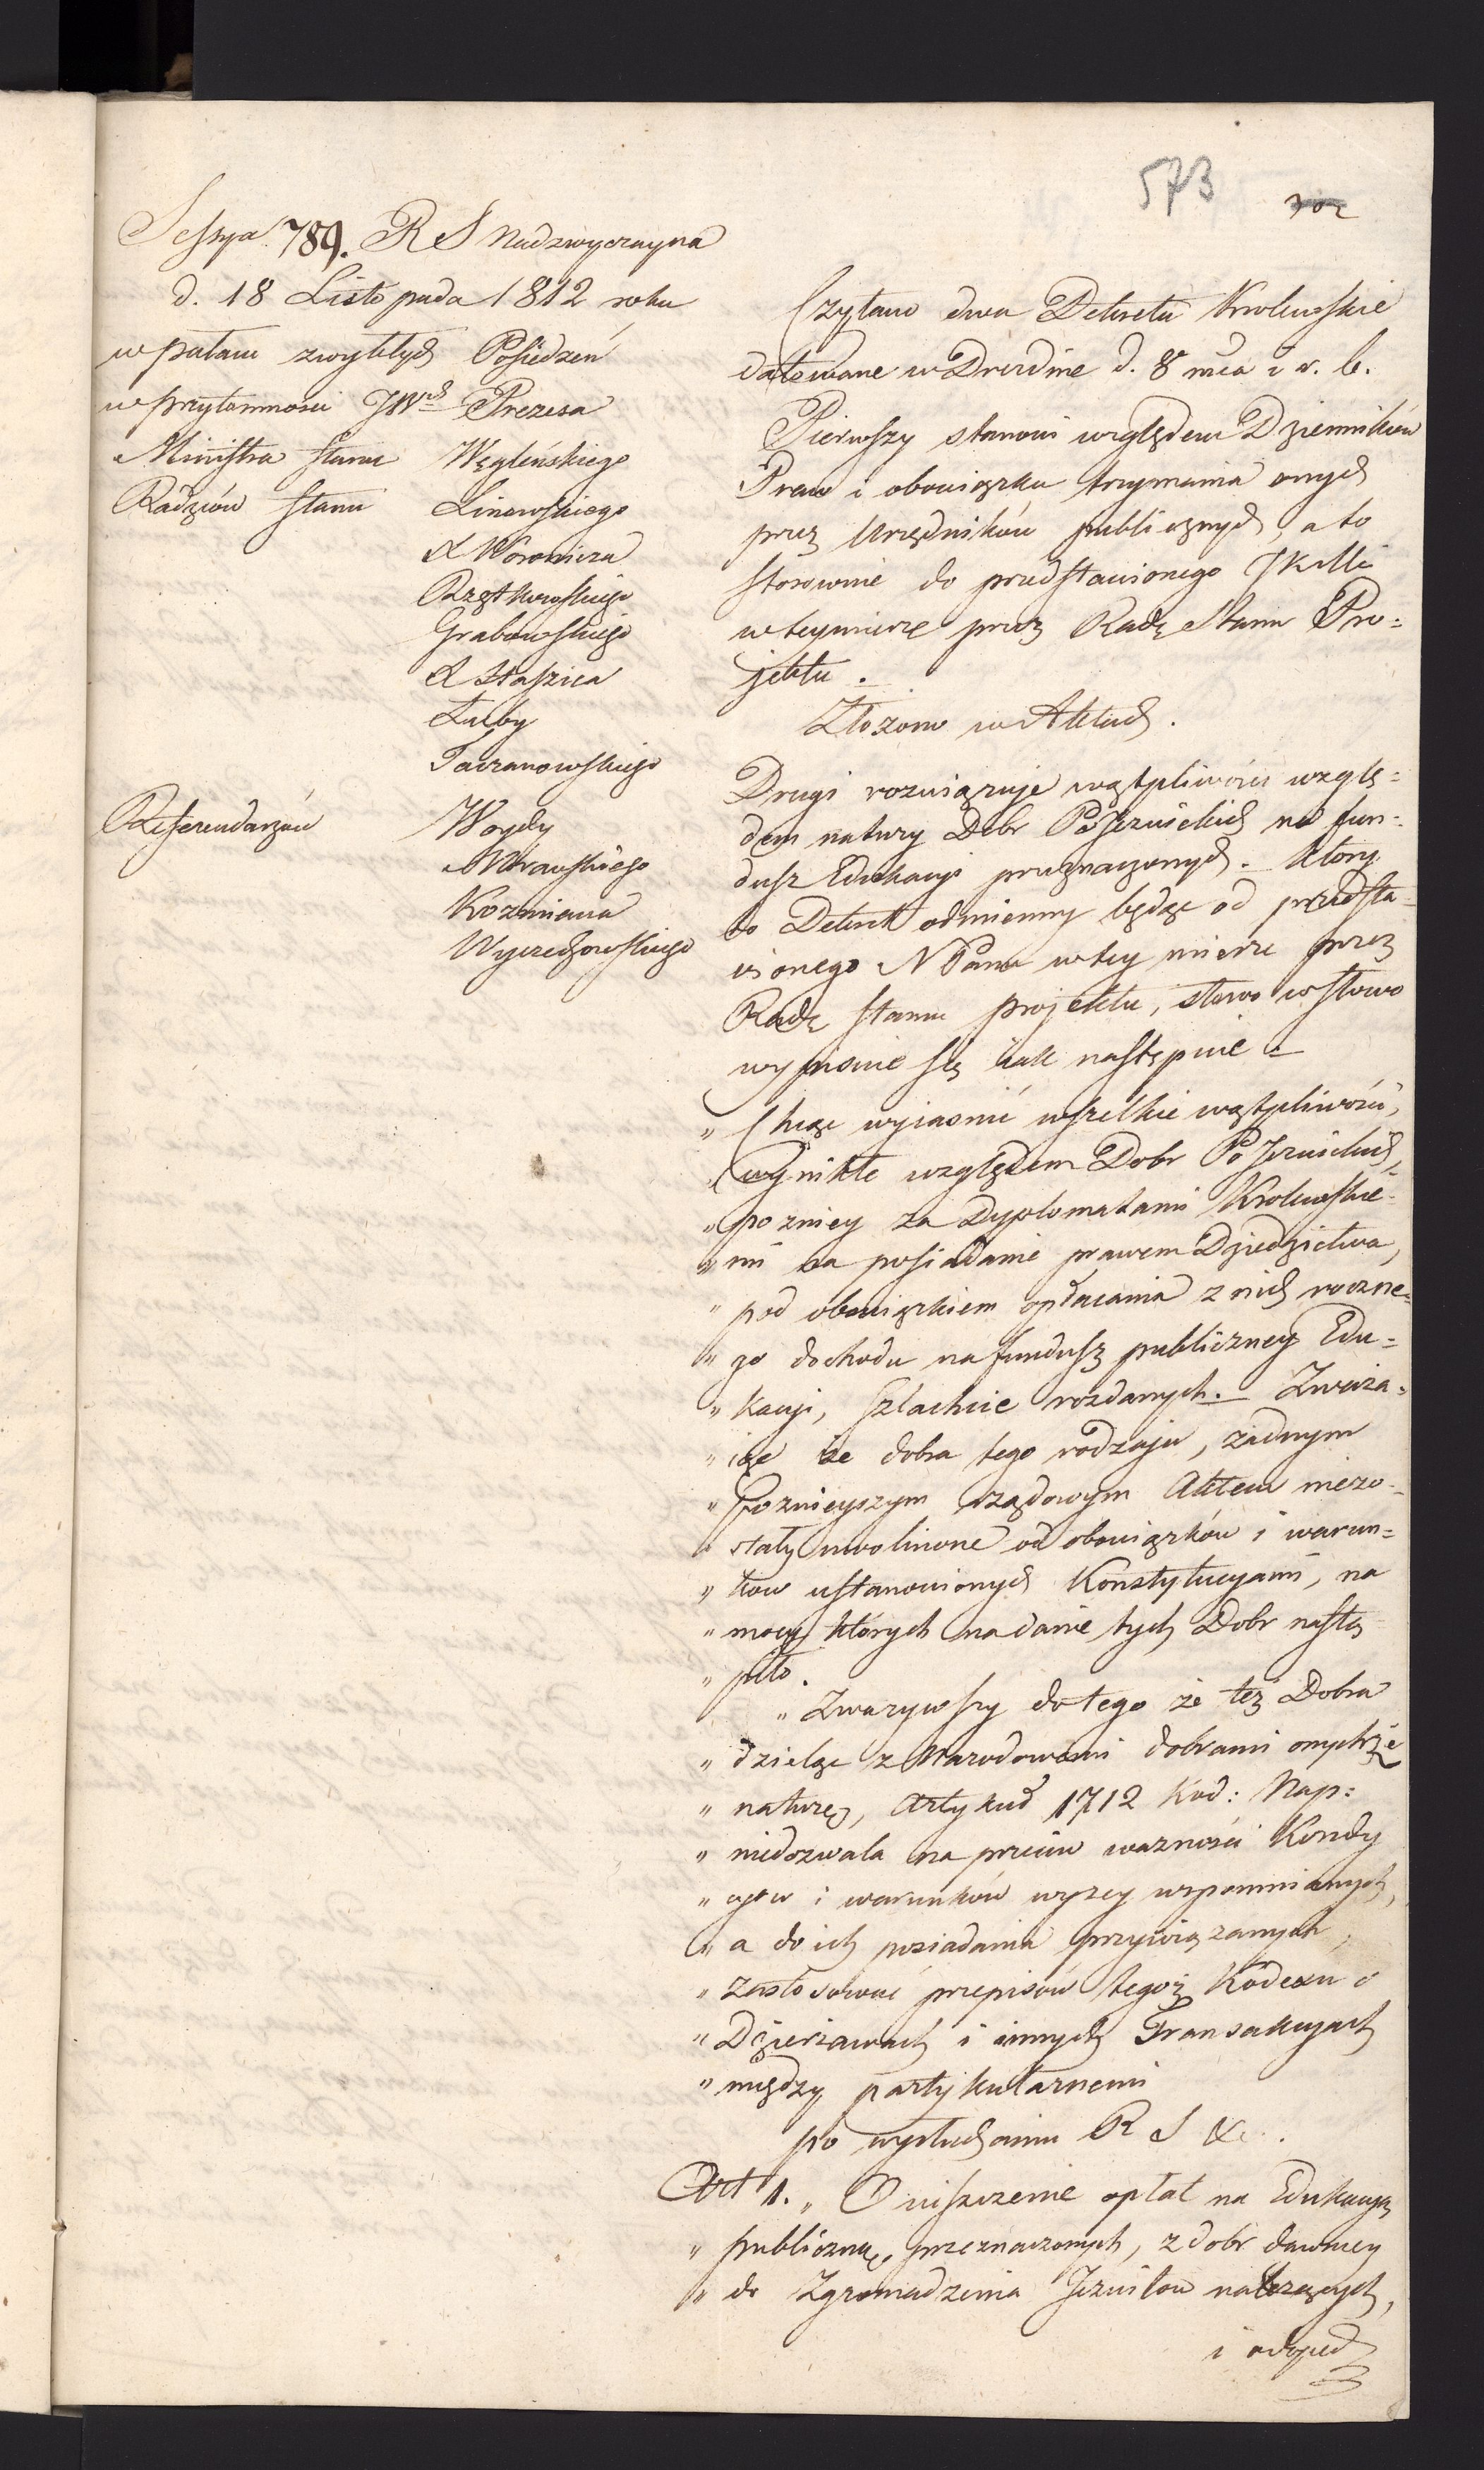 573
302
Sessya 789. R S Nadzwyczayna
d. 18 Listopada 1812 roku
w pałacu zwykłych Posiedzeń
w przytomności JWch Prezesa
Ministra stanu Węgleńskiego
Radzców stanu Linowskiego
X Woronicza
Rzętkowskiego
Grabowskiego
X Staszica
Łuby
Taczanowskiego
Referendarzów Woydy
Morawskiego
Kozmiana
Wyczechowskiego
Czytano dwa Dekreta Krolewskie
datowane w Dreźnie d. 8 mca i r. b.
Pierwszy stanowi względem Dzienników
Praw i obowiązku trzymania onych
przez Urzędników publicznych, a to
stosownie do przedstawionego JKMci
w teymierze przez Radę Stanu Pro=
jektu.
Złożono w Aktach.
Drugi rozwiązuje wątpliwości wzglę=
dem natury Dobr PoJezuickich na fun=
dusz Edukacyi przeznaczonych. Ktory
to Dekret odmienny będąc od przedsta=
wionego NPanu w tey mierze przez
Radę stanu projektu, słowo w słowo
wypisuie się iak następuie.
„ Chcąc wyiasnić wszelkie wątpliwości,
„ wynikłe względem Dobr PoJezuickich,
„ pozniey za Dyplomatami Krolewskie=
„ mi na posiadanie prawem Dziedzictwa,
„ pod obowiązkiem opłacania z nich roczne=
„ go dochodu na fundusz publiczney Edu=
„ kacyi, szlachcie rozdanych. Zważa=
„ iąc że dobra tego rodzaju, żadnym
„ Poznieyszym rządowym Aktem niezo=
„ stały uwolnione od obowiązków i warun=
„ kow ustanowionych Konstytucyami, na
„ mocy których nadanie tych Dobr nastą
„ piło.
„ Zważywszy do tego że też Dobra
„ dzieląc z Narodowemi dobrami onychże
„ naturę, Artykuł 1712 Kod: Nap:
„ niedozwala na przeciw ważności Kondy
„ cyow i warunków wyżey wspomnianych,
„ a do ich posiadania przywiązanych,
„ zastosować przepisów tegoż Kodexu o
„ Dzierżawach i innych Transakcyach
„ między partykularnemi
po wysłuchaniu R S &c.
Art 1. „ Uiszczenie opłat na Edukacyą
„ publiczną, przeznaczonych, z dobr dawniey
„ do Zgromadzenia Jezuitow należących,